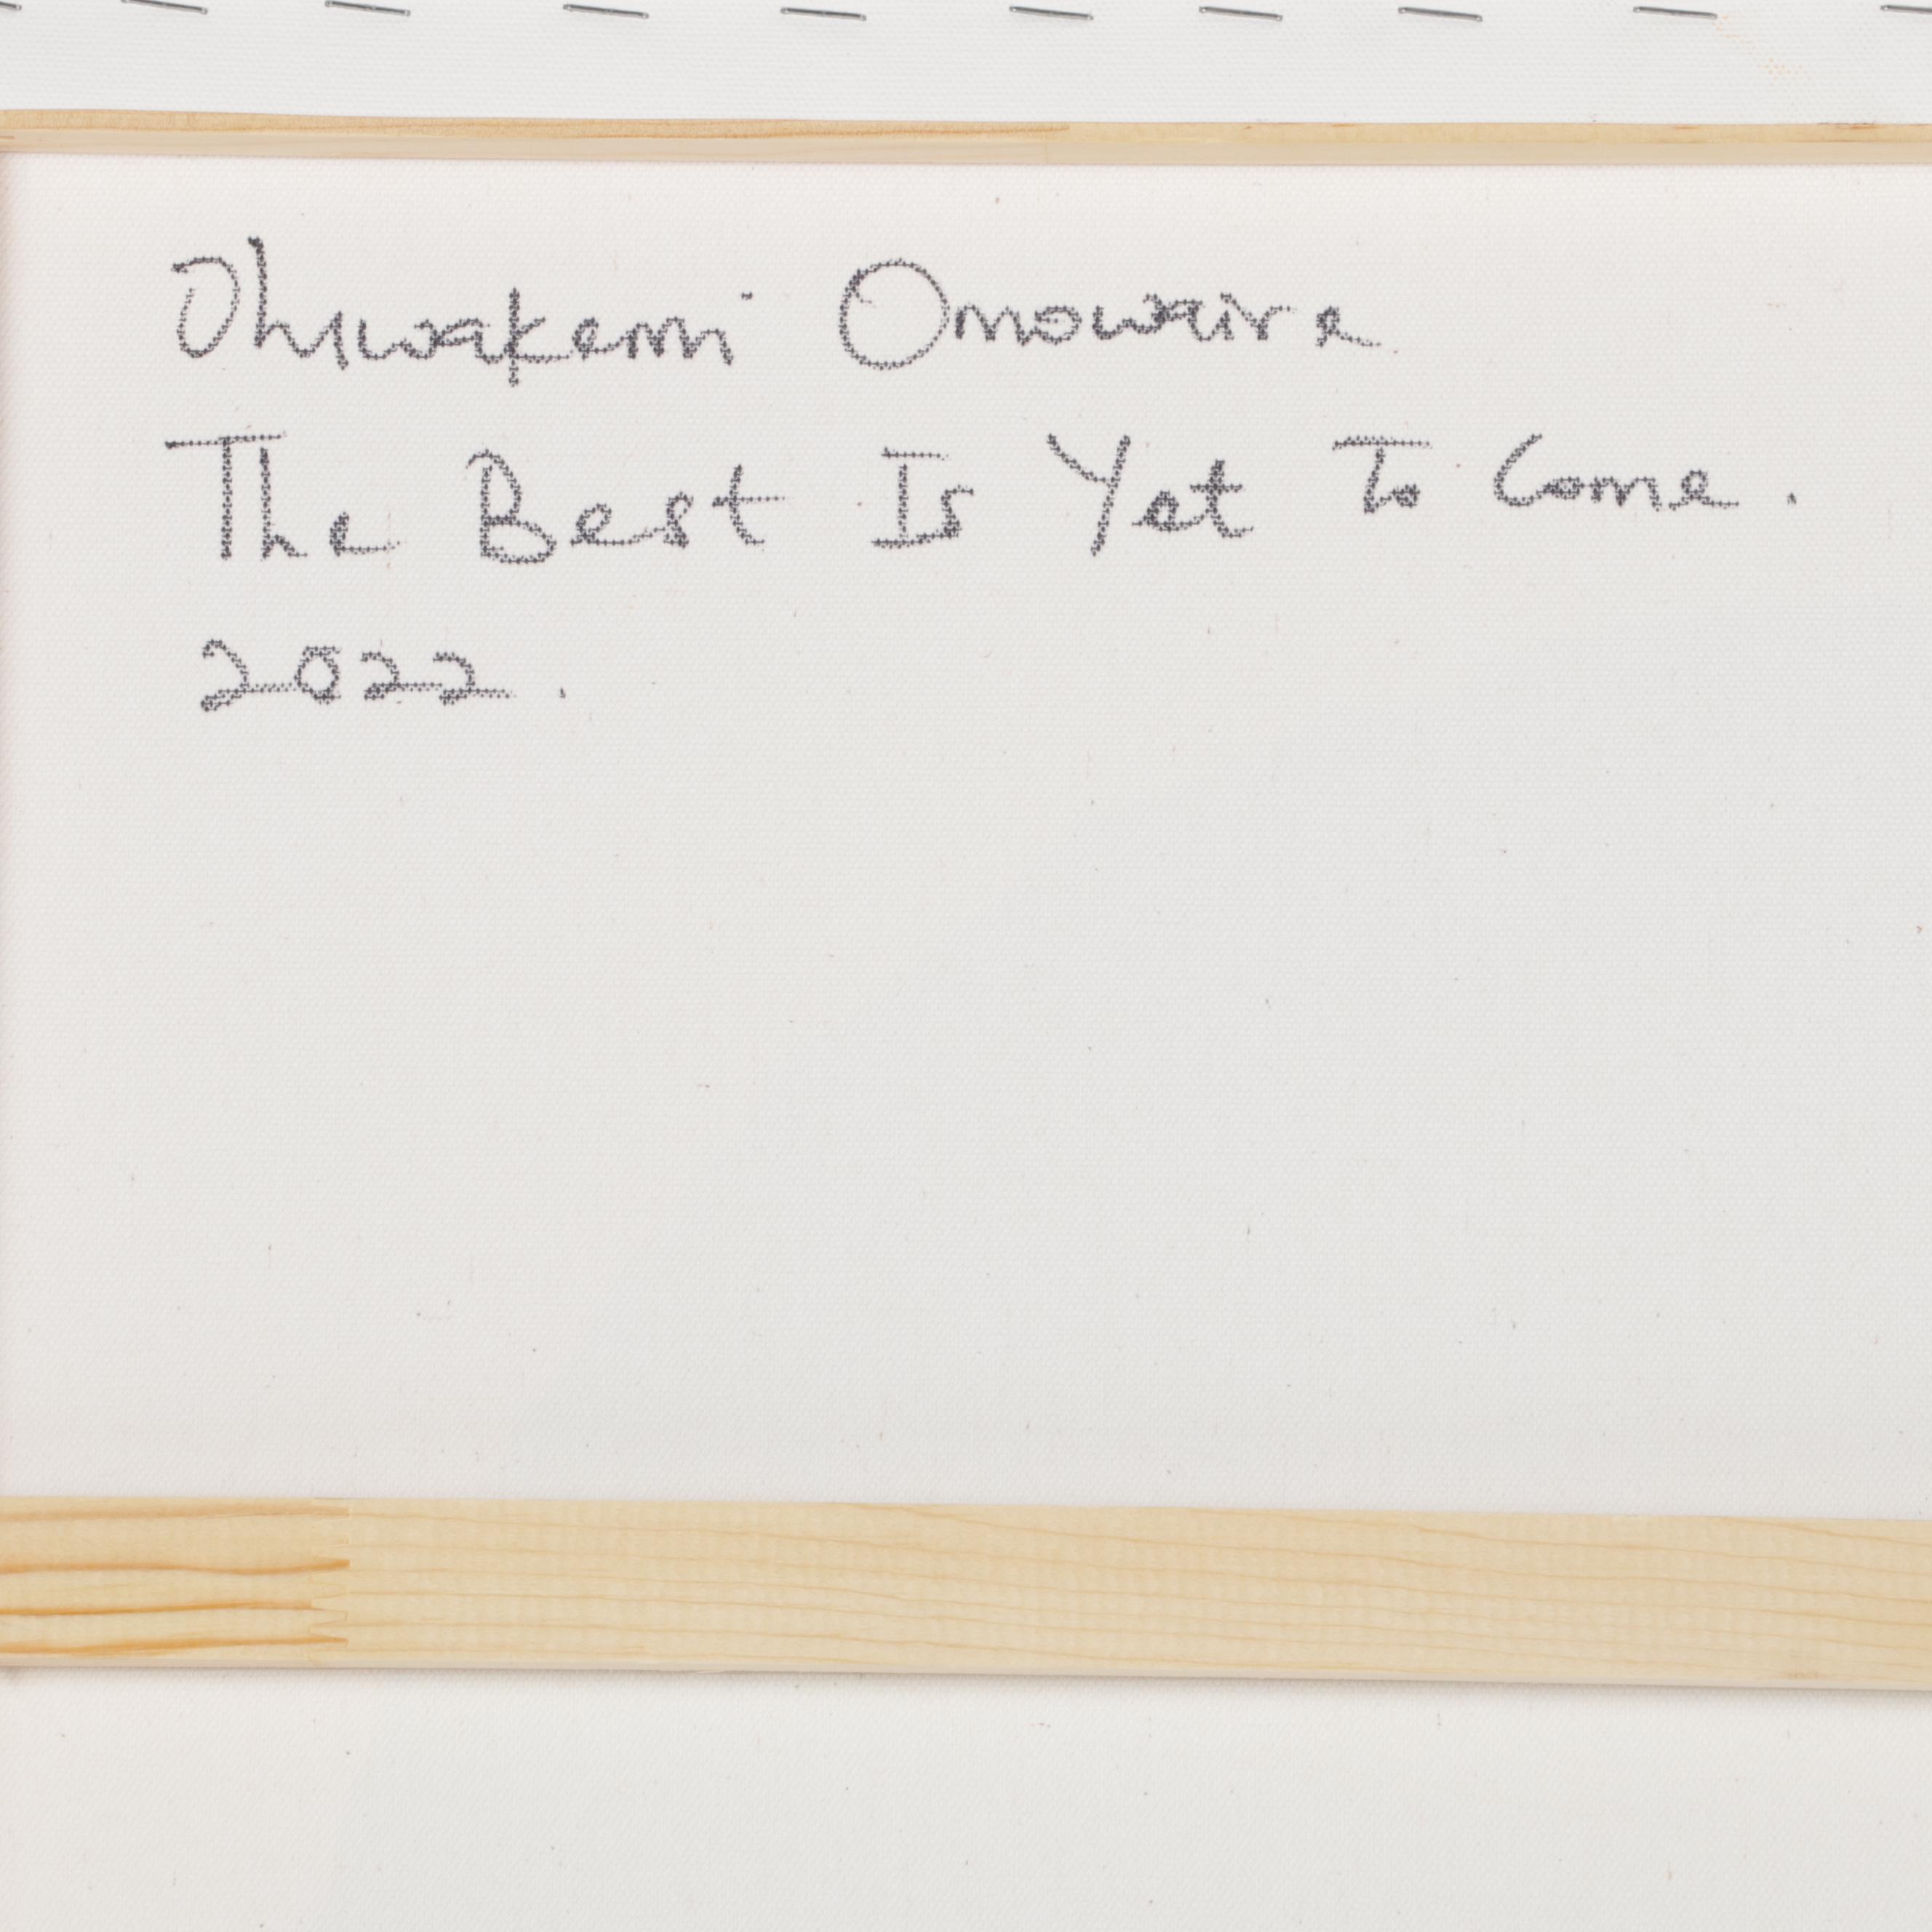 Oluwakemi Omowaire
The Best Is Yet To Come.
2022.